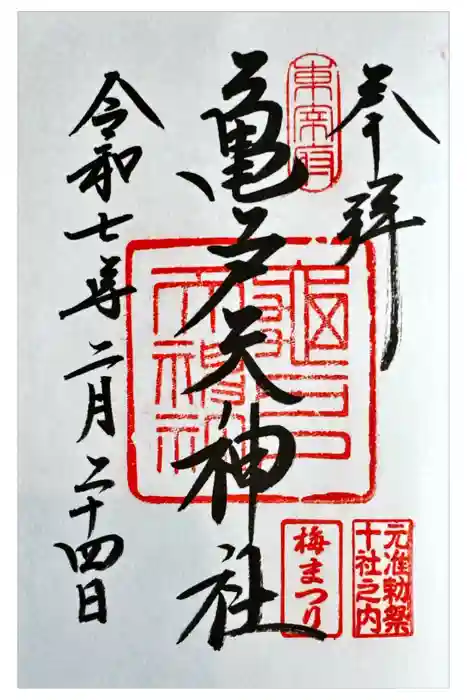 奉拝
東宰府
亀戸天神社
令和七年二月二十四日
元准勅祭
十社之内
梅まつり